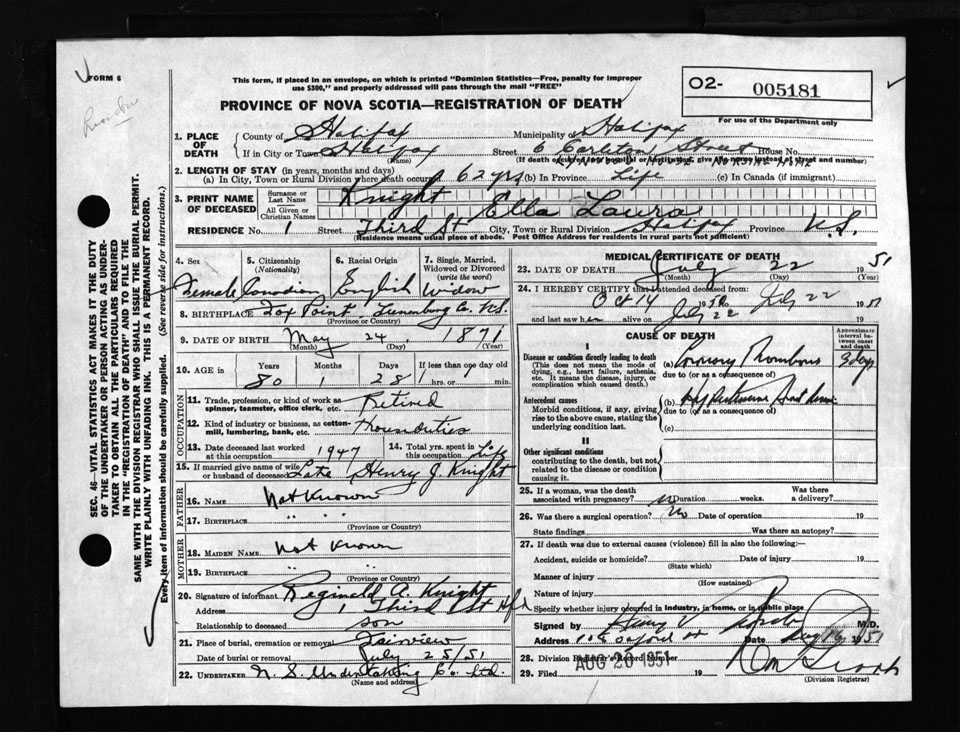 FORM 6
This form, if placed in an envelope, on which is printed "Dominion Statistics—Free, penalty for improper
use $300," and properly addressed will pass through the mail "FREE"
PROVINCE OF NOVA SCOTIA—REGISTRATION OF DEATH
O2- 005181
For use of the Department only
1. PLACE OF DEATH
County of Halifax Municipality of Halifax
If in City or Town Halifax (Name) Street 6 Carleton Street House No.
(If death occurred in a hospital or institution, give its name instead of street and number)
2. LENGTH OF STAY (in years, months and days)
(a) In City, Town or Rural Division where death occurred 62 yrs (b) In Province Life (c) In Canada (if immigrant)
3. PRINT NAME OF DECEASED
Surname or Last Name Knight
All Given or Christian Names Ella Laura
RESIDENCE No. 1 Street Third St City, Town or Rural Division Halifax Province N.S.
(Residence means usual place of abode. Post Office Address for residents in rural parts not sufficient)
SEC. 46—VITAL STATISTICS ACT MAKES IT THE DUTY
OF THE UNDERTAKER OR PERSON ACTING AS UNDER-
TAKER TO OBTAIN ALL THE PARTICULARS REQUIRED
IN THE "REGISTRATION OF DEATH" AND TO FILE THE
SAME WITH THE DIVISION REGISTRAR WHO SHALL ISSUE THE BURIAL PERMIT.
WRITE PLAINLY WITH UNFADING INK. THIS IS A PERMANENT RECORD.
Every item of information should be carefully supplied. (See reverse side for instructions.)
4. Sex Female
5. Citizenship (Nationality) Canadian
6. Racial Origin English
7. Single, Married, Widowed or Divorced (write the word) Widow
8. BIRTHPLACE Fox Point Lunenburg Co. N.S.
(Province or Country)
9. DATE OF BIRTH May 24, 1871
(Month) (Day) (Year)
10. AGE in Years Months Days If less than one day old
80 1 28 hrs. or min.
OCCUPATION
11. Trade, profession, or kind of work as spinner, teamster, office clerk, etc. Retired
12. Kind of industry or business, as cotton-mill, lumbering, bank, etc.
13. Date deceased last worked at this occupation 1947
14. Total yrs. spent in this occupation Life
15. If married give name of wife or husband of deceased Late Henry J. Knight
FATHER
16. NAME Not Known
17. BIRTHPLACE " "
(Province or Country)
MOTHER
18. MAIDEN NAME Not Known
19. BIRTHPLACE " "
(Province or Country)
20. Signature of informant Reginald A. Knight
Address 1 Third St Hfx
Relationship to deceased son
21. Place of burial, cremation or removal Fairview
Date of burial or removal July 25/51
22. UNDERTAKER N. S. Undertaking Co. Ltd.
(Name and address)
MEDICAL CERTIFICATE OF DEATH
23. DATE OF DEATH July 22 1951
(Month) (Day) (Year)
24. I HEREBY CERTIFY that I attended deceased from
Oct 14 1950 to July 22 1951
and last saw her alive on July 22 19
CAUSE OF DEATH
Approximate interval between onset and death
I
Disease or condition directly leading to death
(This does not mean the mode of dying, e.g., heart failure, asthenia, etc. It means the disease, injury, or complication which caused death.)
(a) Coronary Thrombosis
due to (or as a consequence of)
Antecedent causes
Morbid conditions, if any, giving rise to the above cause, stating the underlying condition last.
(b) Hypertensive
due to (or as a consequence of)
(c)
II
Other significant conditions
contributing to the death, but not related to the disease or condition causing it.
25. If a woman, was the death associated with pregnancy? no Duration weeks. Was there a delivery?
26. Was there a surgical operation? no Date of operation 19
State findings Was there an autopsy?
27. If death was due to external causes (violence) fill in also the following:—
Accident, suicide or homicide? Date of injury 19
(State which)
Manner of injury
(How sustained)
Nature of injury
Specify whether injury occurred in industry, in home, or in public place
Signed by M.D.
Address Date 1951
28. Division Registrar's Record Number
AUG 20 1951
29. Filed 19
(Division Registrar)